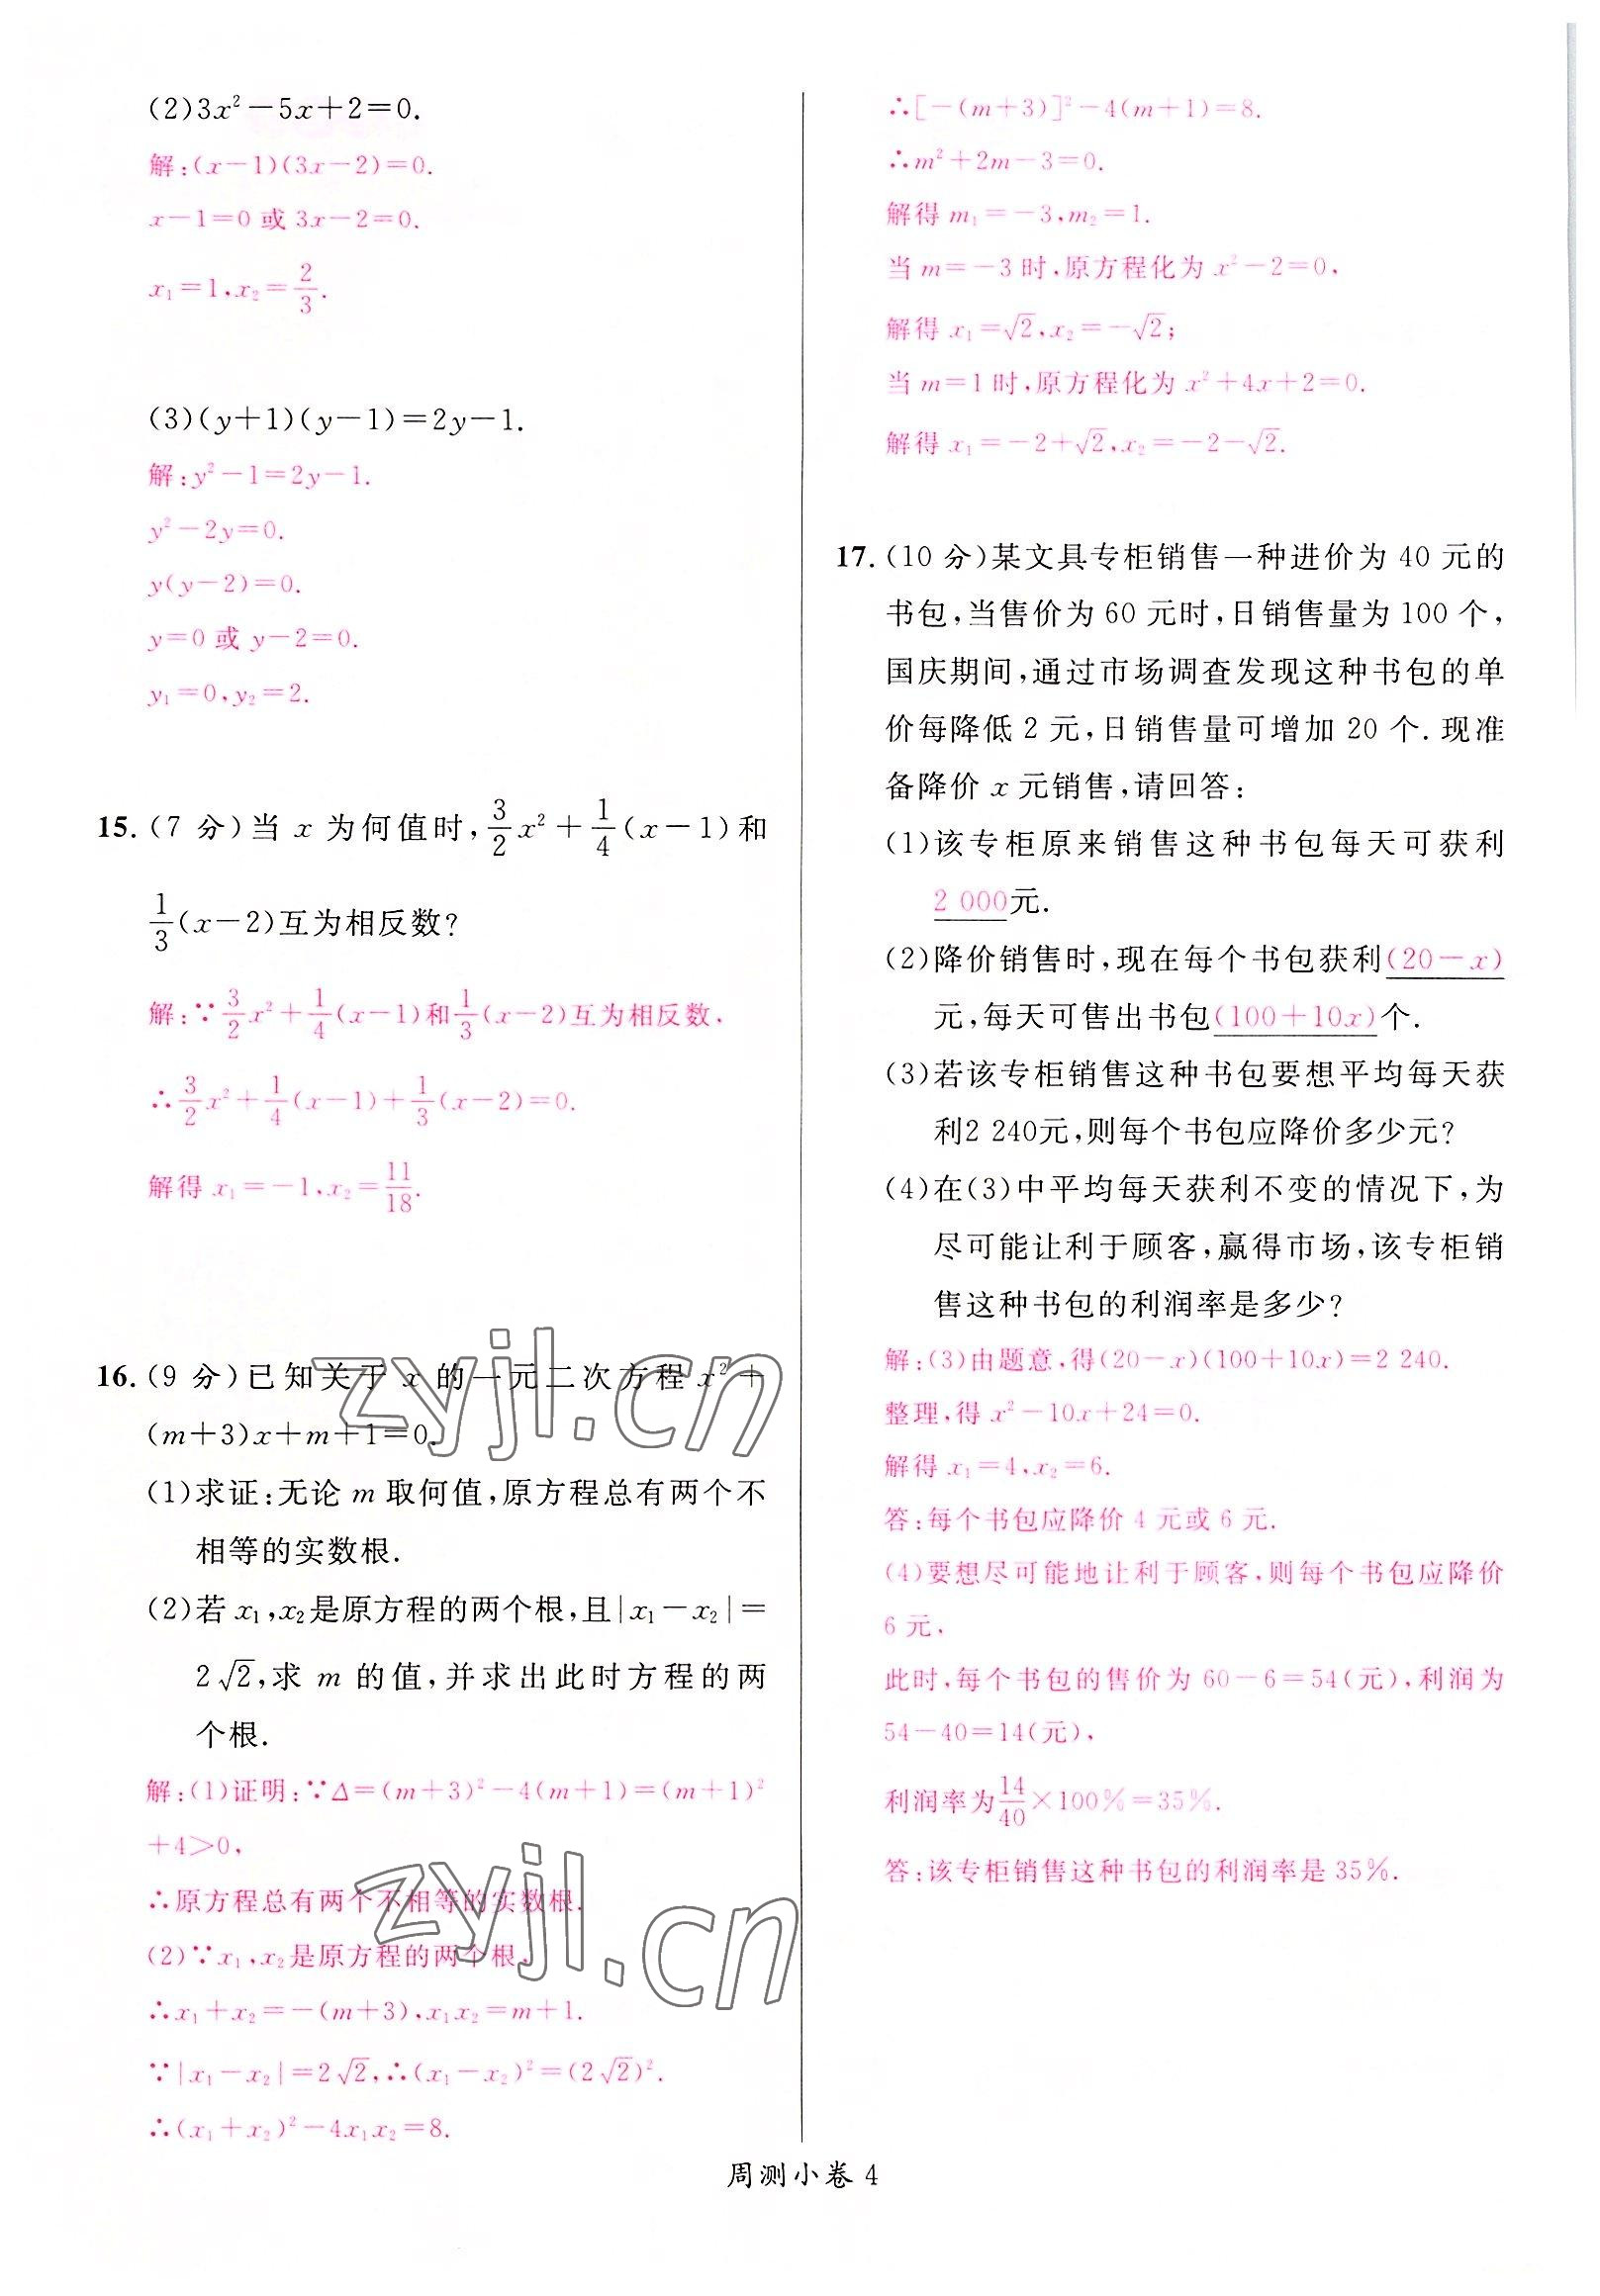 (2)3x²-5x+2=0.
解:(x-1)(3x-2)=0.
x-1=0 或 3x-2=0.
x₁=1,x₂=2/3.
(3)(y+1)(y-1)=2y-1.
解:y²-1=2y-1.
y²-2y=0.
y(y-2)=0.
y=0 或 y-2=0.
y₁=0,y₂=2.
15.(7 分)当 x 为何值时,3/2x²+1/4(x-1)和
1/3(x-2)互为相反数?
解:∵3/2x²+1/4(x-1)和1/3(x-2)互为相反数,
∴3/2x²+1/4(x-1)+1/3(x-2)=0.
解得 x₁=-1,x₂=11/18.
16.(9 分)已知关于 x 的一元二次方程 x²+
(m+3)x+m+1=0.
(1)求证:无论 m 取何值,原方程总有两个不
相等的实数根.
(2)若 x₁,x₂是原方程的两个根,且|x₁-x₂|=
2√2,求 m 的值,并求出此时方程的两
个根.
解:(1)证明:∵Δ=(m+3)²-4(m+1)=(m+1)²
+4>0,
∴原方程总有两个不相等的实数根.
(2)∵x₁,x₂是原方程的两个根,
∴x₁+x₂=-(m+3),x₁x₂=m+1.
∵|x₁-x₂|=2√2,∴(x₁-x₂)²=(2√2)².
∴(x₁+x₂)²-4x₁x₂=8.
∴[-(m+3)]²-4(m+1)=8.
∴m²+2m-3=0.
解得 m₁=-3,m₂=1.
当 m=-3 时,原方程化为 x²-2=0,
解得 x₁=√2,x₂=-√2;
当 m=1 时,原方程化为 x²+4x+2=0.
解得 x₁=-2+√2,x₂=-2-√2.
17.(10 分)某文具专柜销售一种进价为 40 元的
书包,当售价为 60 元时,日销售量为 100 个,
国庆期间,通过市场调查发现这种书包的单
价每降低 2 元,日销售量可增加 20 个.现准
备降价 x 元销售,请回答:
(1)该专柜原来销售这种书包每天可获利
2 000元.
(2)降价销售时,现在每个书包获利(20-x)
元,每天可售出书包(100+10x)个.
(3)若该专柜销售这种书包要想平均每天获
利2 240元,则每个书包应降价多少元?
(4)在(3)中平均每天获利不变的情况下,为
尽可能让利于顾客,赢得市场,该专柜销
售这种书包的利润率是多少?
解:(3)由题意,得(20-x)(100+10x)=2 240.
整理,得 x²-10x+24=0.
解得 x₁=4,x₂=6.
答:每个书包应降价 4 元或 6 元.
(4)要想尽可能地让利于顾客,则每个书包应降价
6 元,
此时,每个书包的售价为 60-6=54(元),利润为
54-40=14(元),
利润率为14/40×100%=35%.
答:该专柜销售这种书包的利润率是 35%.
zyjl.cn
zyjl.cn
周测小卷 4